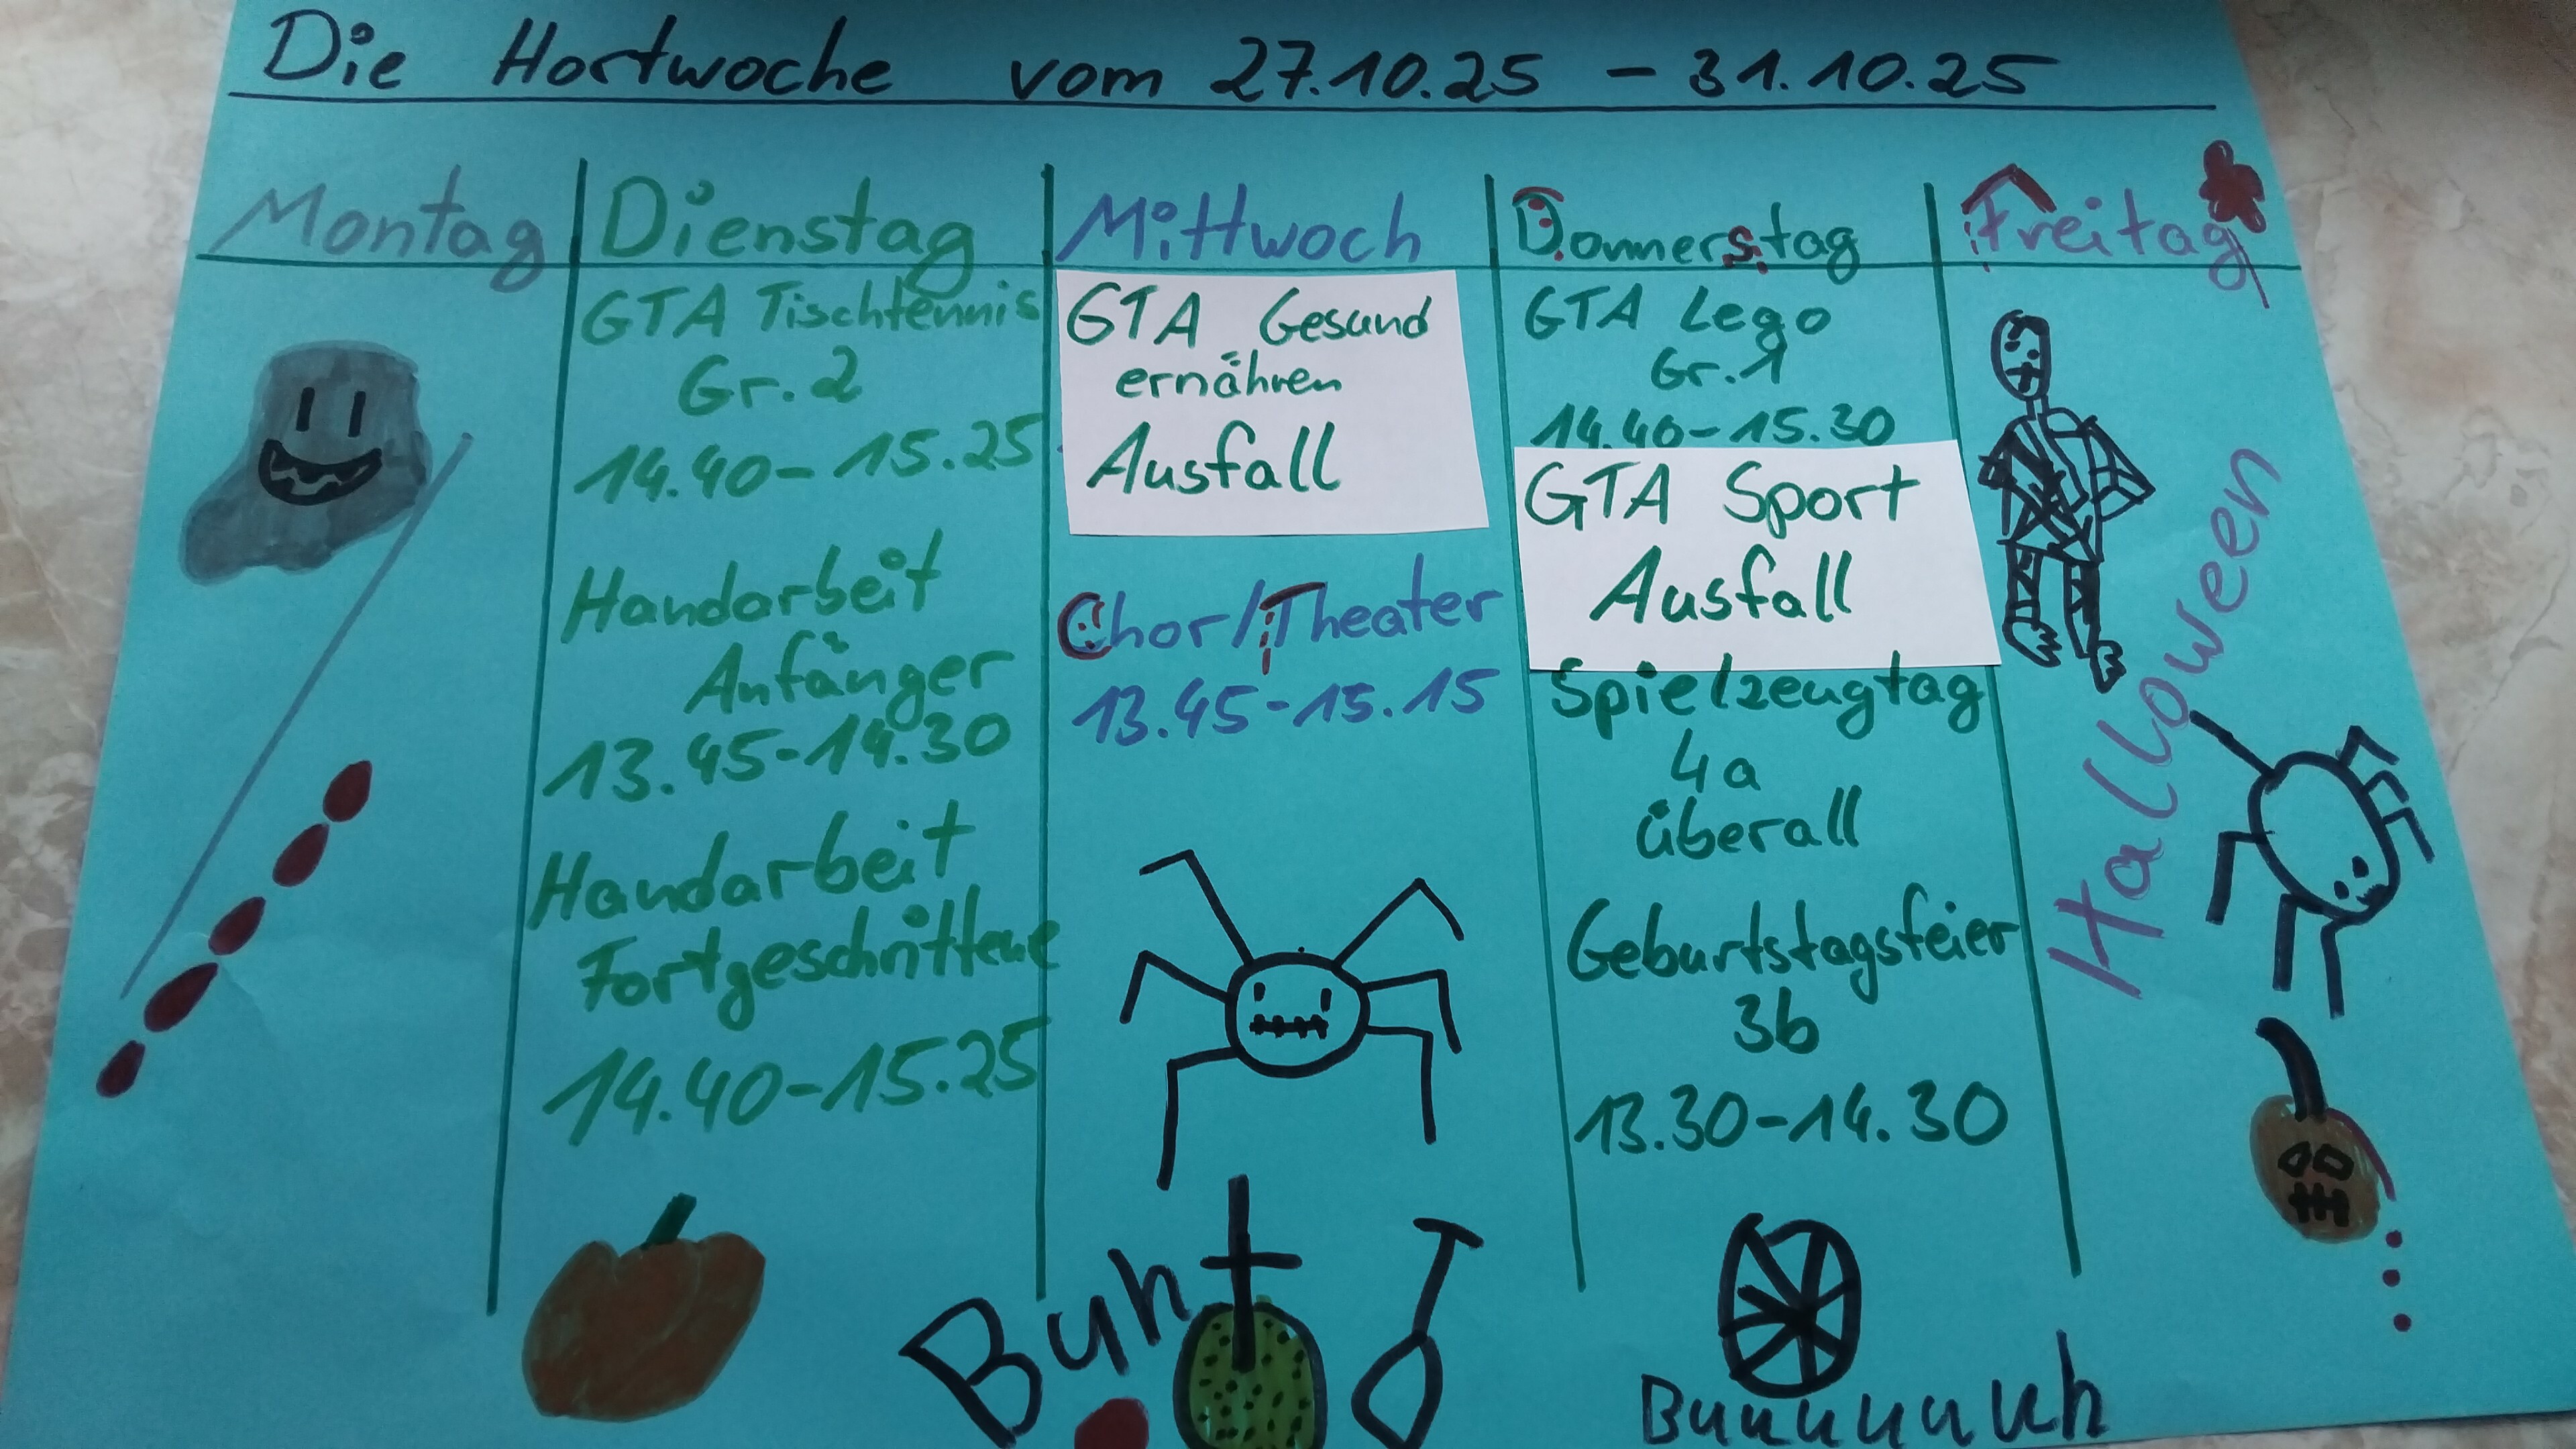 Die Hortwoche vom 27.10.25 - 31.10.25
Montag
Dienstag
GTA Tischtennis
Gr. 2
14.40 - 15.25
Handarbeit
Anfänger
13.45 - 14.30
Handarbeit
Fortgeschrittene
14.40 - 15.25
Mittwoch
GTA Gesund
ernähren
Ausfall
Chor/Theater
13.45 - 15.15
Buh
Donnerstag
GTA Lego
Gr. 1
14.40 - 15.30
GTA Sport
Ausfall
Spielzeugtag
4a
überall
Geburtstagsfeier
3b
13.30 - 14.30
Buuuuuuh
Freitag
Halloween